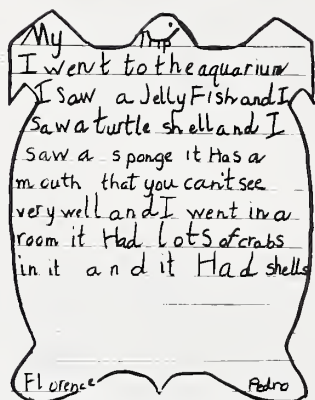 My Trip
I went to the aquarium
I Saw a Jelly Fish and I
Saw a turtle shell and I
saw a sponge it Has a
mouth that you can't see
very well and I went in a
room it Had lots of crabs
in it and it Had shells
Florence Pedro